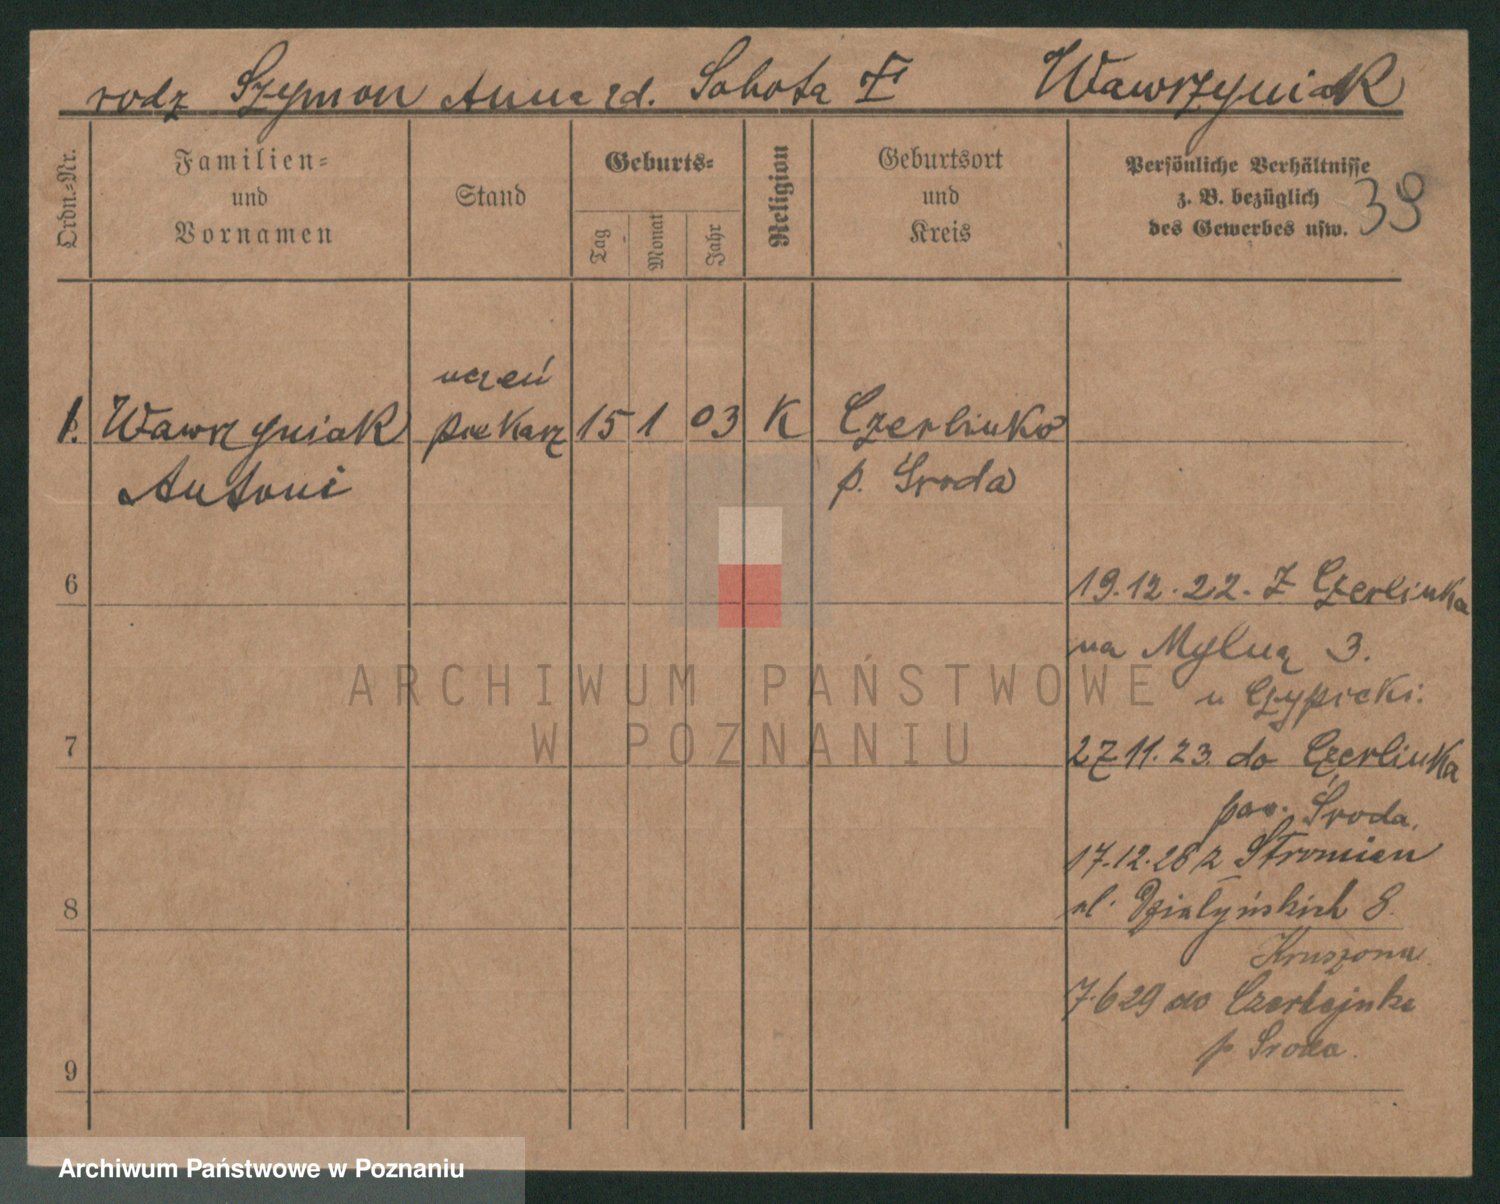 rodz Szymon Anna zd. Sobota Wawrzyniak
Ordn.=Nr.
Familien=
und
Vornamen
Stand
Geburts=
Tag
Monat
Jahr
Religion
Geburtsort
und
Kreis
Persönliche Verhältnisse
z. B. bezüglich
des Gewerbes usw.
39
uczeń
1. Wawrzyniak piekarz 15 1 03 K Czerlinko
Antoni p. Środa
6
19.12.22. z Czerlinka
na Mylną 3.
u Czypicki.
7
27.11.23. do Czerlinka
pow. Środa.
17.12.28 z
8
ul. Działyńskich 8.
Kruszona
7.6 29 do Czerlejnka
p Środa.
9
ARCHIWUM PAŃSTWOWE
W POZNANIU
Archiwum Państwowe w Poznaniu